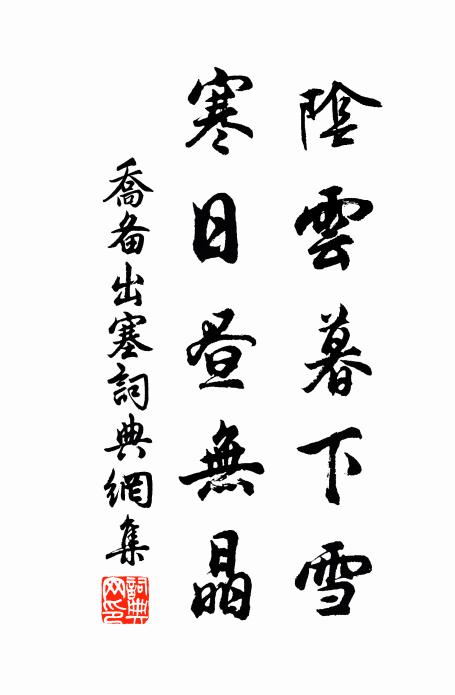 陰雲暮下雪
寒日昼無晶
喬备出塞詞典網集
詞典網印